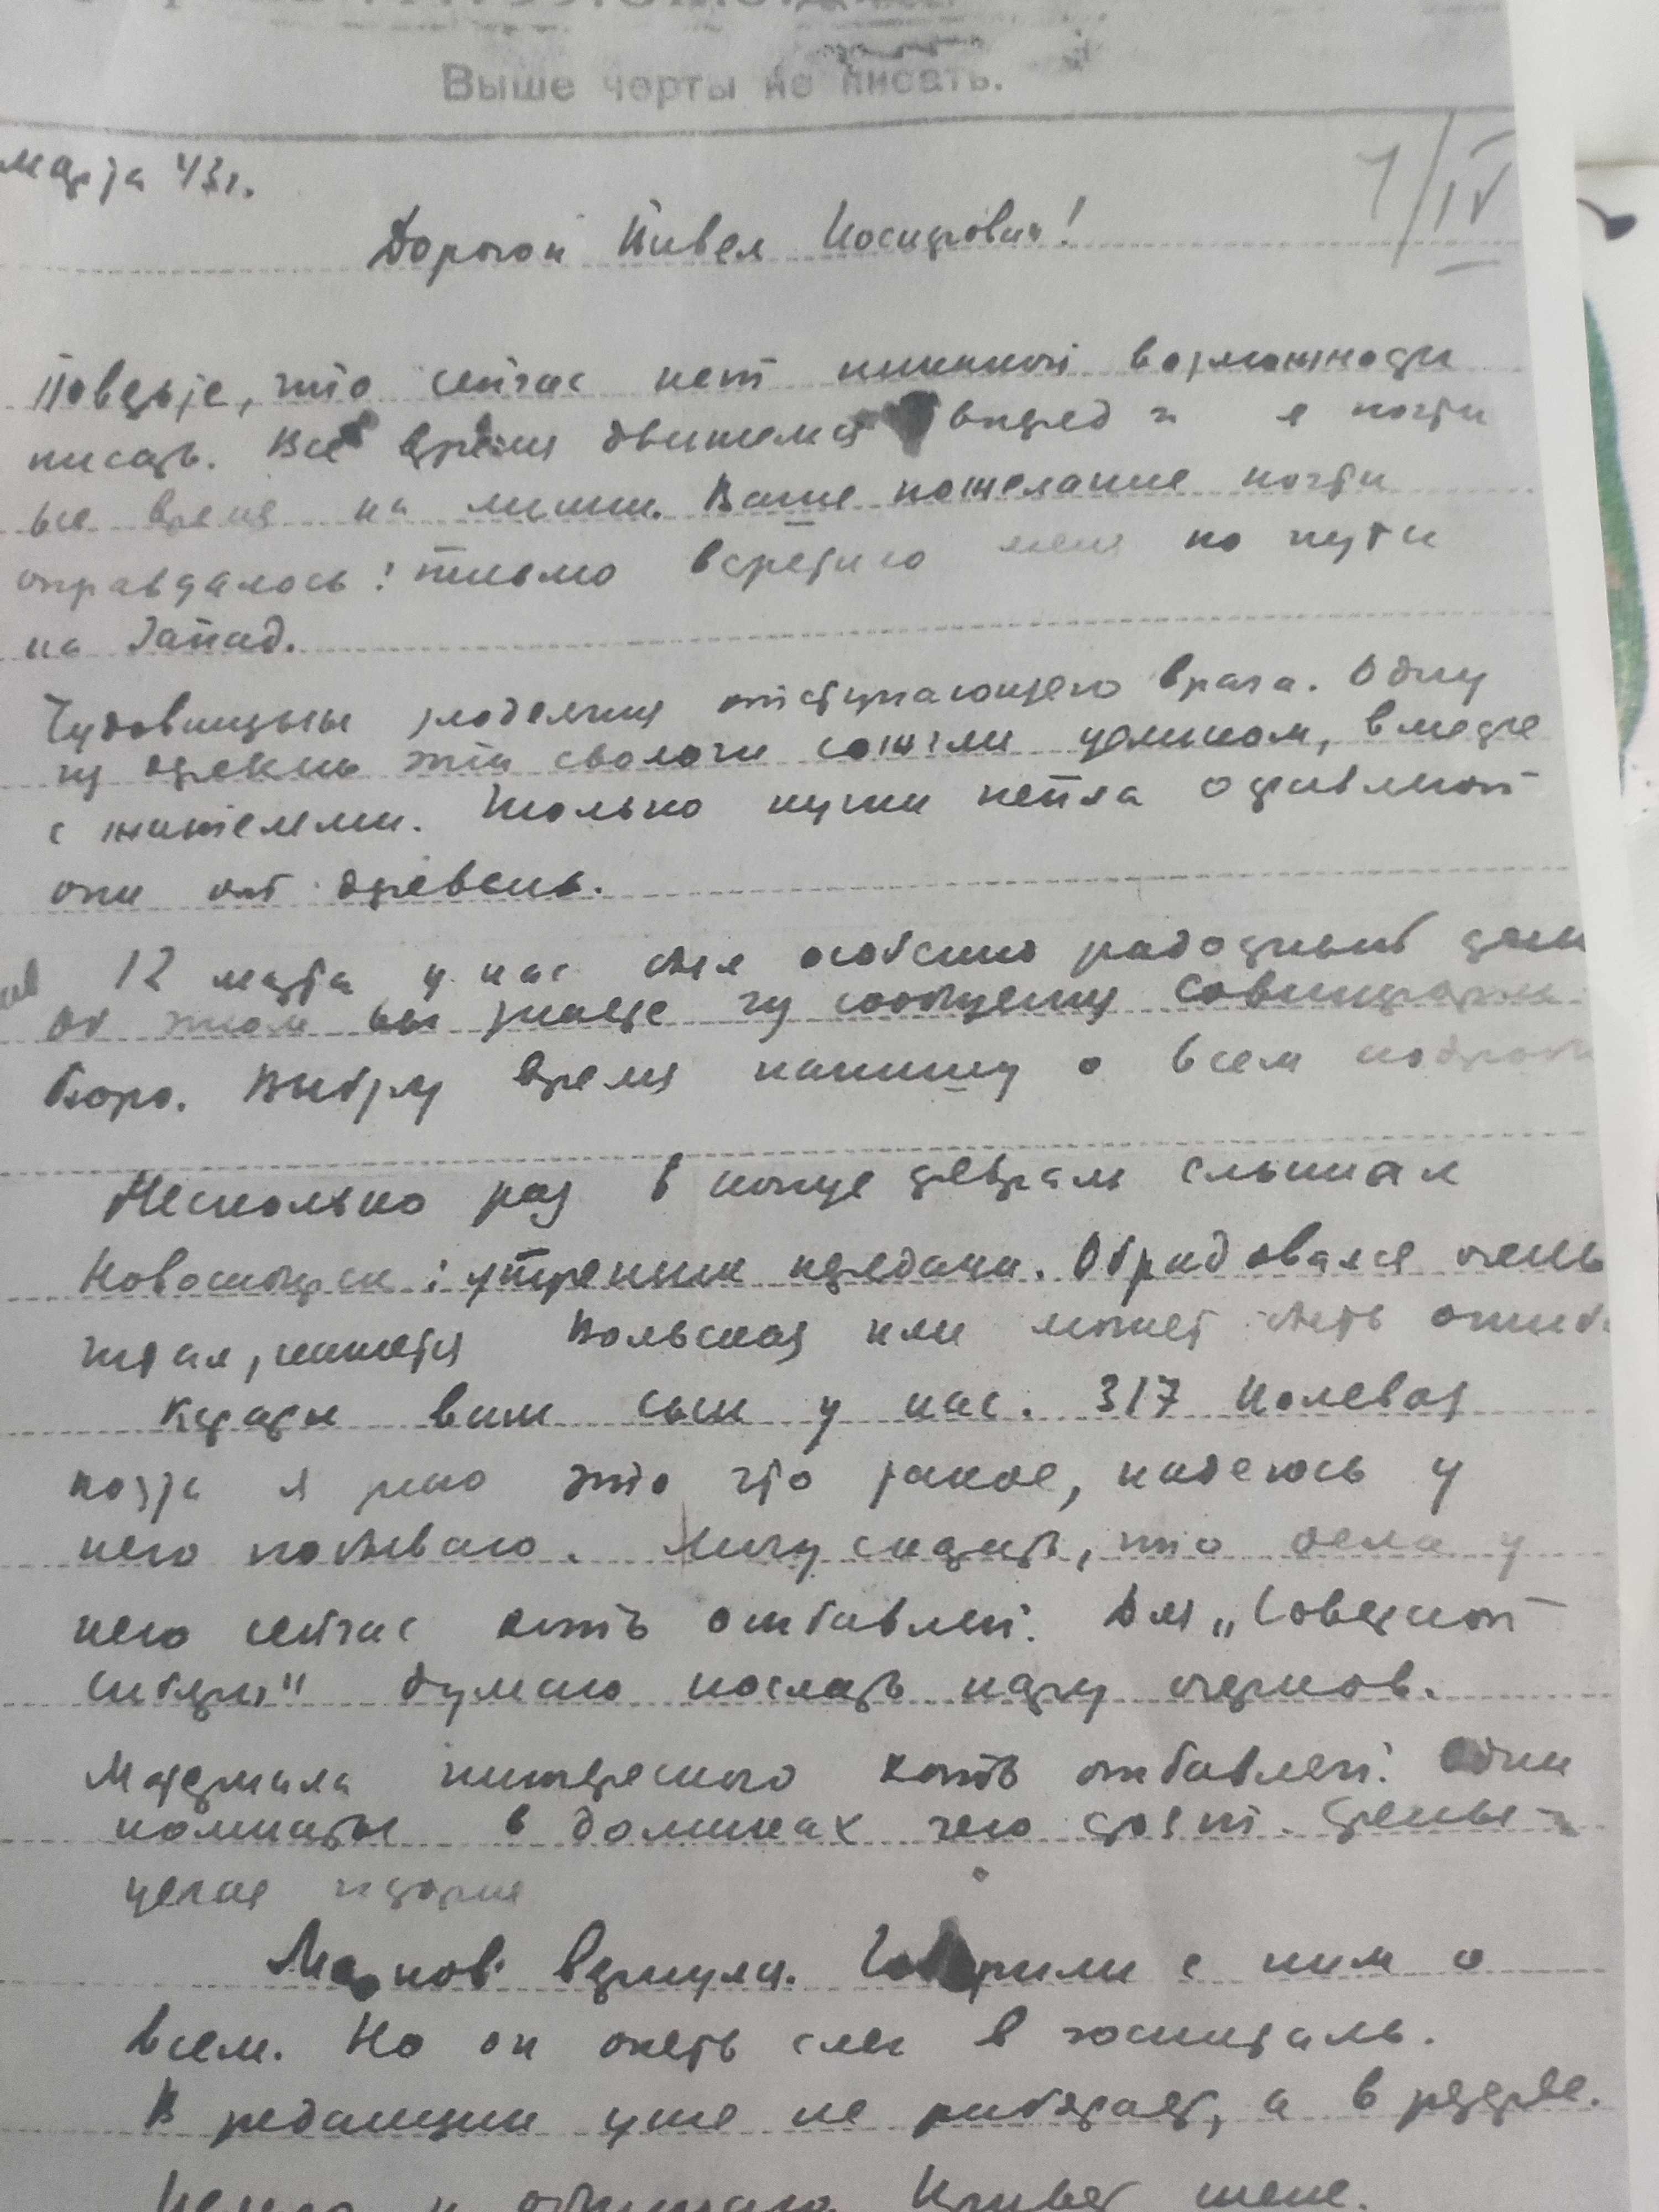 Выше черты не писать.
марта 43г.
1/IV
Дорогой Павел Иосифович!
Поверьте, что сейчас нет никакой возможности
писать. Всё время движемся вперед и я почти
все время на линии. Ваше пожелание почти
оправдалось: письмо встретило меня по пути
на Запад.
Чудовищны злодеяния отступающего врага. Одну
из деревень эти сволочи сожгли целиком, вместе
с жителями. Только кучи пепла оставляют
они от деревень.
12 марта у нас был особенно радостный день
Об этом вы знаете из сообщения Совинформ-
бюро. Выберу время напишу о всем подробн
Несколько раз в конце февраля слышал
Новосибирск: утренние передачи. Обрадовался очень
читал, кажется Вольская или может быть ошиб.
Кстати ваш сын у нас. 317 полевая
почта я знаю это что такое, надеюсь у
него побываю. Могу сказать, что дела у
него сейчас хоть отбавляй. Для „Советской
Сибири" думаю послать пару очерков.
Материала интересного хоть отбавляй. Одни
комнаты в домиках чего стоят.
целая история
вернулся. Говорили с ним о
всем. Но он опять слег в госпиталь.
В редакции уже не работает, а в резерве.
и обнимаю Привет жене.